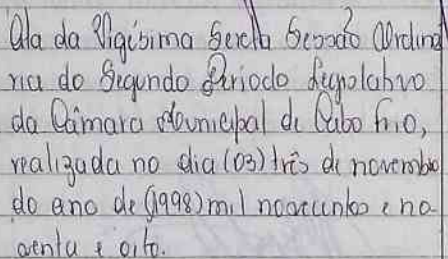 Ata da Vigésima Sexta Sessão Ordiná
ria do Segundo Período Legislativo
da Câmara Municipal de Cabo Frio,
realizada no dia (03) três de novembro
do ano de (1998) mil novecentos e no-
venta e oito.